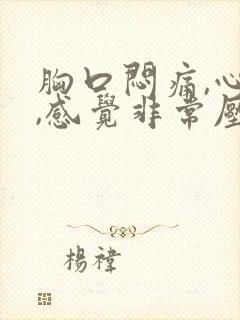 胸口悶痛,心
,感覺非常壓
楊禕